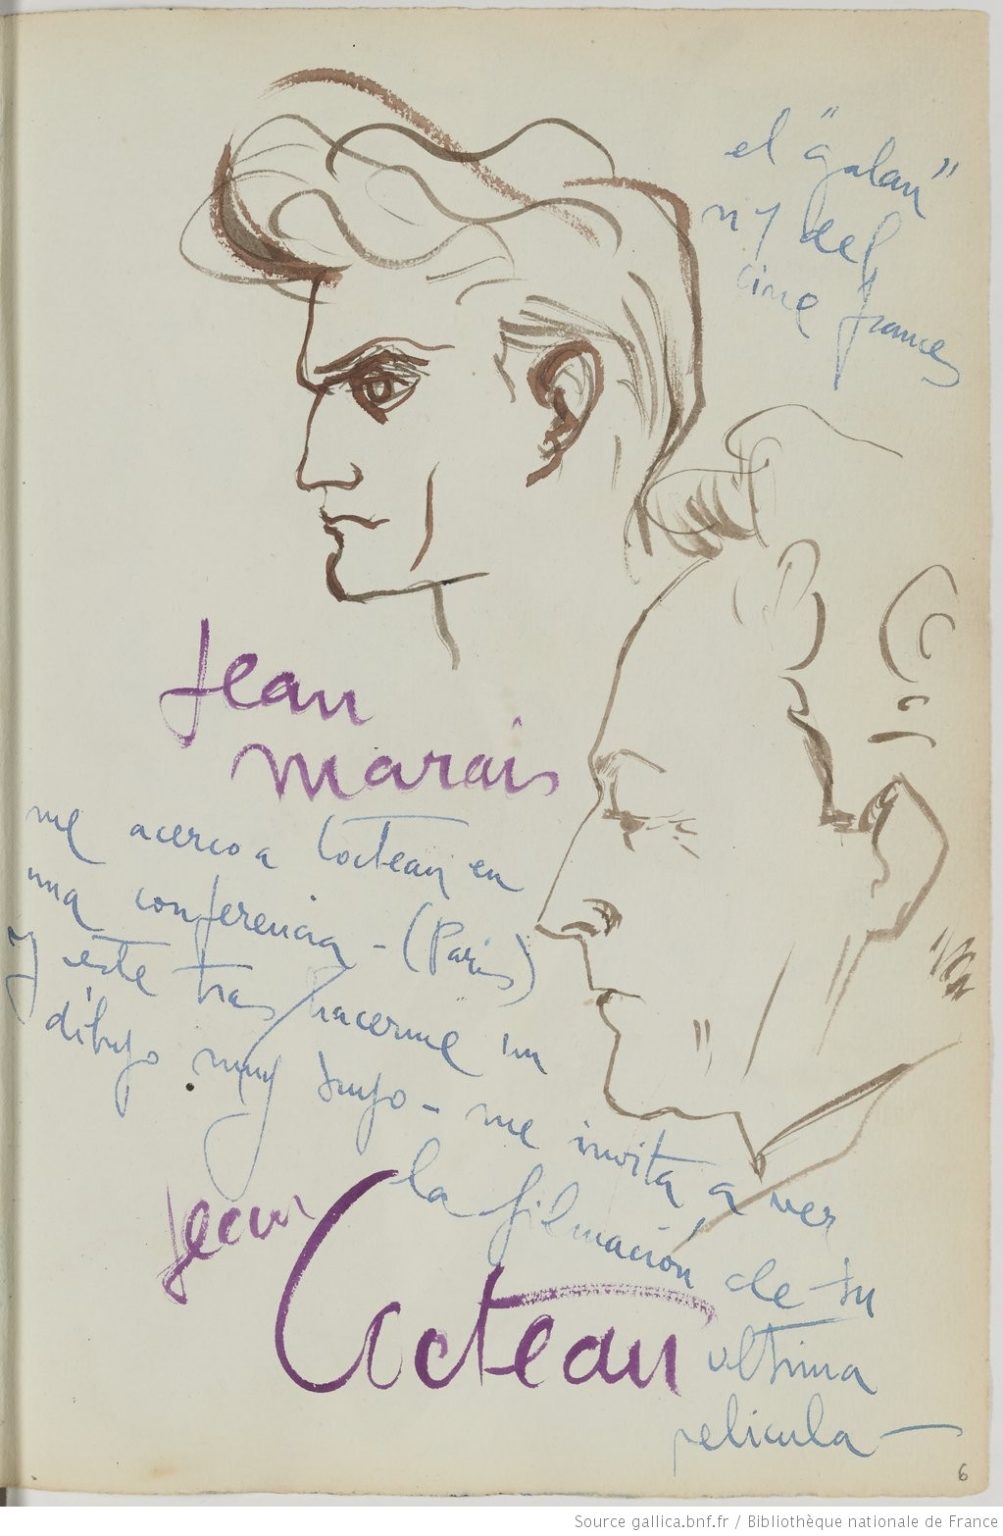 el "galan"
nº 1 del
cine frances
Jean
marais
me acerco a Cocteau en
una conferencia - (Paris)
y este tras hacerme un
dibujo muy suyo - me invita a ver
la filmación de su
ultima
pelicula -
Jean
Cocteau
6
Source gallica.bnf.fr / Bibliothèque nationale de France